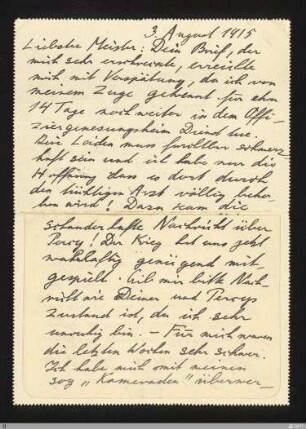 3. August 1915
Liebster Meister: Dein Brief, der
mich sehr erschreckte, erreichte
mich mit Verspätung, da ich von
meinem Zuge getrennt für etwa
14 Tage noch weiter in dem Offi-
ziergenesungsheim Dienst tue.
Dein Leiden muss furchtbar schmerz-
haft sein und ich habe nur die
Hoffnung dass es dort durch
den tüchtigen Arzt völlig beho-
ben wird! Dazu kam die
schauderhafte Nachricht über
Percy! Der Krieg hat uns jetzt
wahrhaftig genügend mit-
gespielt. Gib mir bitte Nach-
richt wie Deiner und Percys
Zustand ist, da ich sehr
unruhig bin. — Für mich waren
die letzten Wochen sehr schwer.
Ich habe mich mit meinen
sog „Kameraden" überwer-